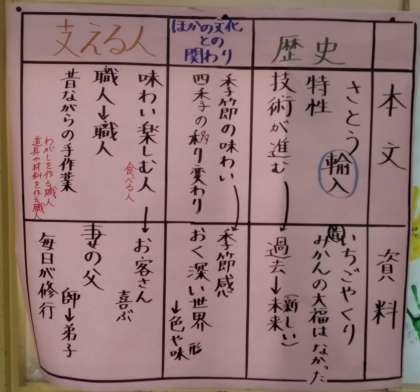 本文
資料
歴史
さとう輸入
特性
技術が進む
いちごやくり
みかんの大福はなかった
過去→未来
(新しい)
ほかの文化
との
関わり
季節の味わい
四季の移り変わり
季節感
おく深い世界
形
→色や味
支える人
味わい楽しむ人
食べる人
職人→職人
昔ながらの手作業
わがしを作る職人
道具や材料を作る職人
→お客さん
喜ぶ
妻の父
師→弟子
毎日が修行